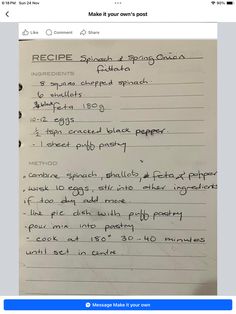 6:18 PM Sun 24 Nov
90%
Make it your own's post
Like Comment Share
RECIPE Spinach & Spring Onion
frittata
INGREDIENTS
8 squares chopped spinach
6 shallots
feta 180g
10-12 eggs
½ tspn cracked black pepper
- 1 sheet puff pastry
METHOD
- combine spinach, shallots, feta & pepper
- wisk 10 eggs, stir into other ingredients
if too dry add more
- line pie dish with puff pastry
- pour mix into pastry
- cook at 180° 30-40 minutes
until set in centre
Message Make it your own